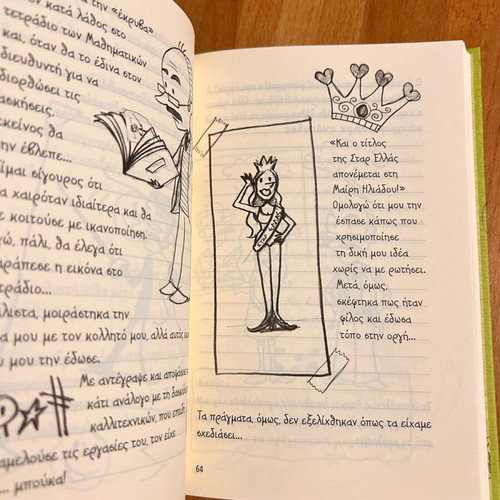 α την «έκρυβα»
ν κατά λάθος στο
τετράδιο των Μαθηματικών
και, όταν θα το έδινα στον
διευθυντή για να
διορθώσει τις
ασκήσεις,
εκείνος θα
την έβλεπε...
Είμαι σίγουρος ότι
α χαιρόταν ιδιαίτερα και θα
ε κοιτούσε με ικανοποίηση.
γώ, πάλι, θα έλεγα ότι
αράπεσε η εικόνα στο
τράδιο...
λιστα, μοιράστηκα την
α μου με τον κολλητό μου, αλλά αυτός
μου την έδωσε.
Με αντέγραψε και αποφάσισε
κάτι ανάλογο με τη δασκάλα
καλλιτεχνικών, που επειδή
αμελούσε τις εργασίες του, τον είχε
... μπούκα!
ΣΤΑΡ ΕΛΛΑΣ
«Και ο τίτλος
της Σταρ Ελλάς
απονέμεται στη
Μαίρη Ηλιάδου!»
Ομολογώ ότι μου την
έσπασε κάπως που
χρησιμοποίησε
τη δική μου ιδέα
χωρίς να με ρωτήσει.
Μετά, όμως,
σκέφτηκα πως ήταν
φίλος και έδωσα
τόπο στην οργή...
Τα πράγματα, όμως, δεν εξελίχθηκαν όπως τα είχαμε
σχεδιάσει...
64